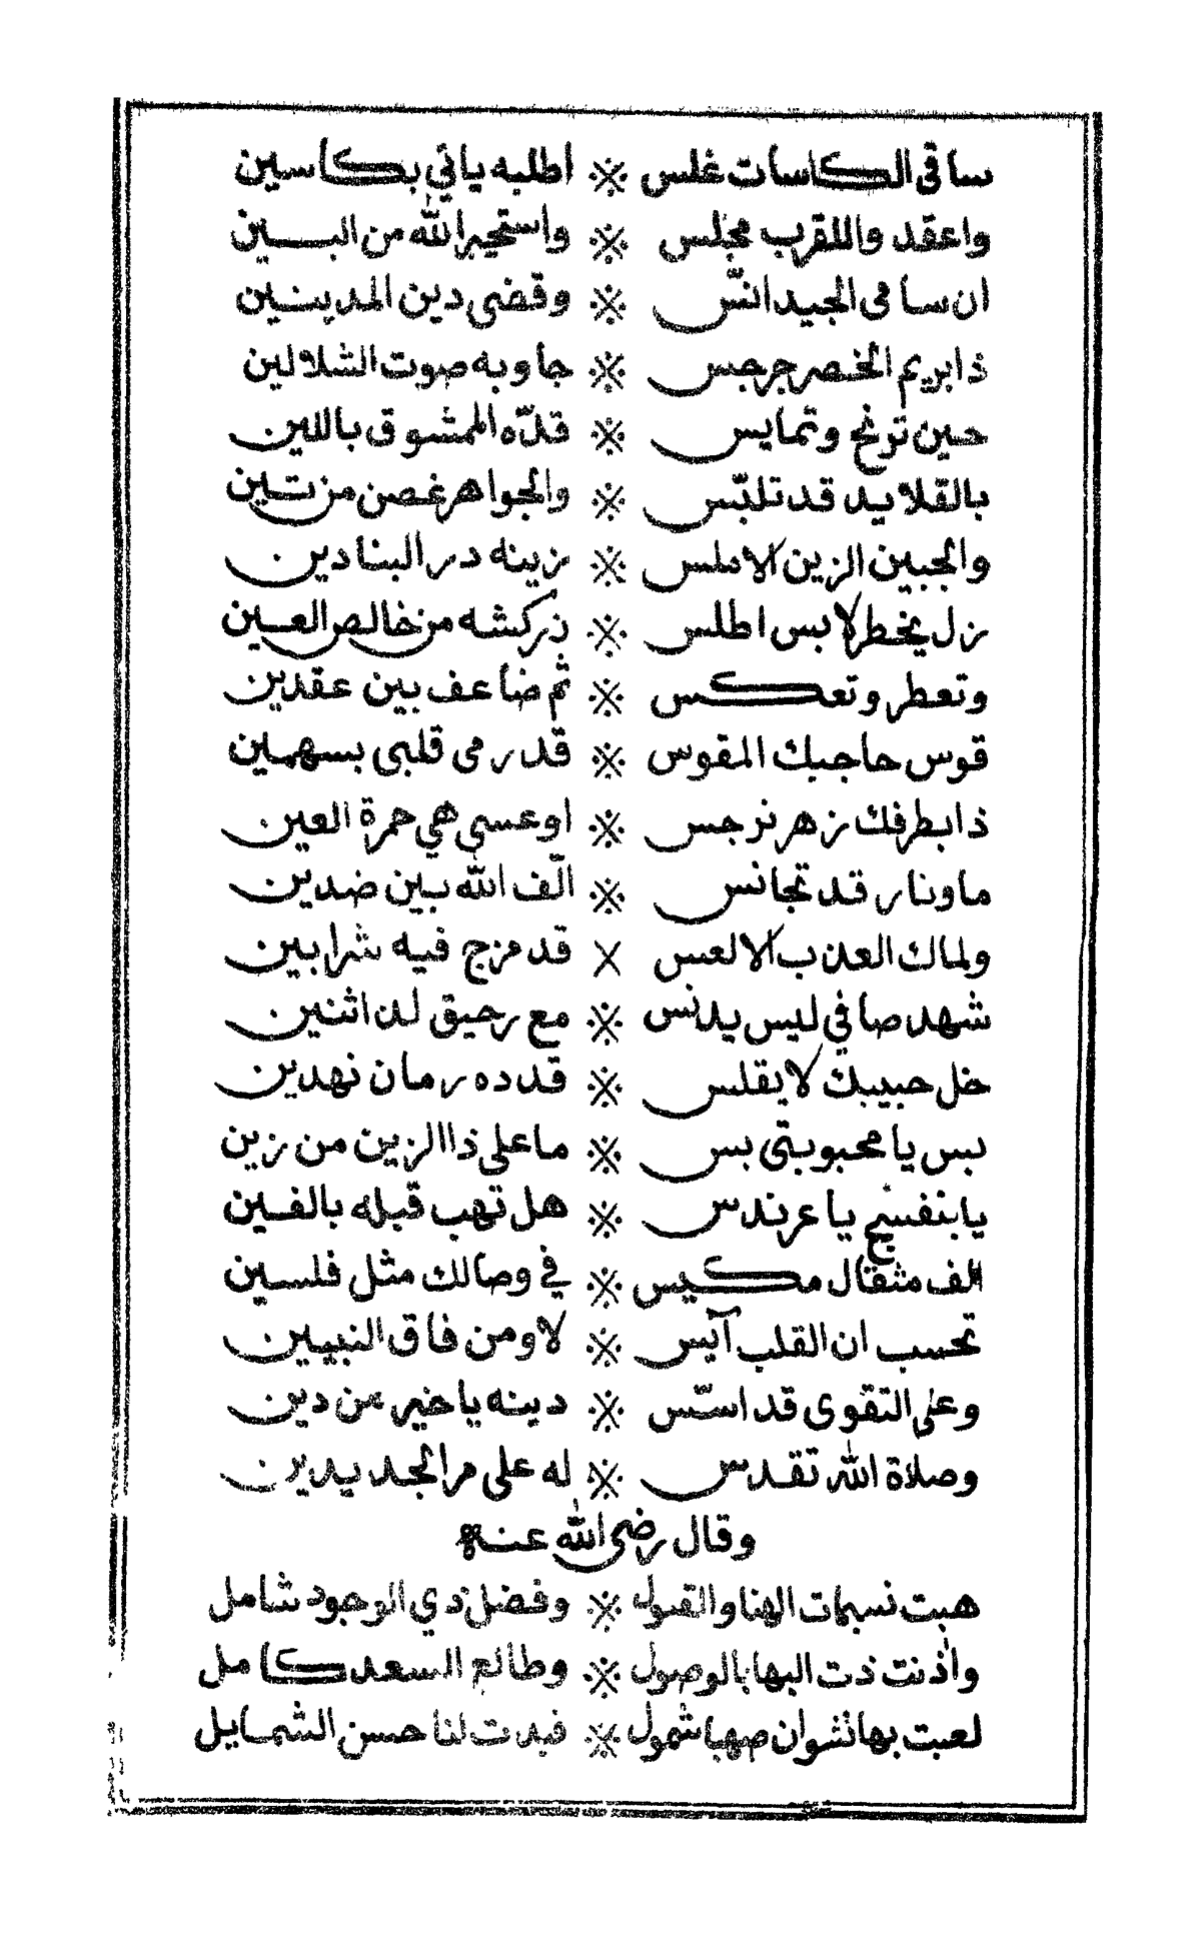 ساقي الكاسات غلس ※ اطلبه ياتي بكاسين
واعقد واللقرب مجلس ※ واستجير الله من البين
ان سامى الجيد انّس ※ وقضى دين المدينين
ذا بريم الخصر جرجس ※ جاوبه صوت الشلالين
حين ترنح وتمايس ※ قدّه الممشوق باللين
بالقلايد قد تلبّس ※ والجواهر غصن من تين
والجبين الزين الاملس ※ زينه در البنادين
زل يخطر لابس اطلس ※ زركشه من خالص العين
وتعطر وتعكس ※ ثم ضاعف بين عقدين
قوس حاجبك المقوس ※ قد رمى قلبي بسهمين
ذا بطرفك زهر نرجس ※ او عسى هي حمرة العين
ما ونار قد تجانس ※ الّف الله بين ضدين
ولماك العذب الالعس × قد مزج فيه شرابين
شهد صافي ليس يدنس ※ مع رحيق لذ اثنين
خل حبيبك لا يقلس ※ قدده رمان نهدين
بس يا محبوبتى بس ※ ما على ذا الزين من زين
يا بنفسج يا عرندس ※ هل تهب قبله بالفين
الف مثقال مكيس ※ في وصالك مثل فلسين
تحسب ان القلب آيس ※ لا ومن فاق النبيين
وعلى التقوى قد اسّس ※ دينه يا خير من دين
وصلاة الله تقدس ※ له على مر الجديدين
وقال رضى الله عنه
هبت نسيمات الهنا والقبول ※ وفضل ذي الوجود شامل
واذنت ذت البها بالوصول ※ وطالع السعد كامل
لعبت بها نشوان صهبا شمول ※ فبدت لنا حسن الشمايل